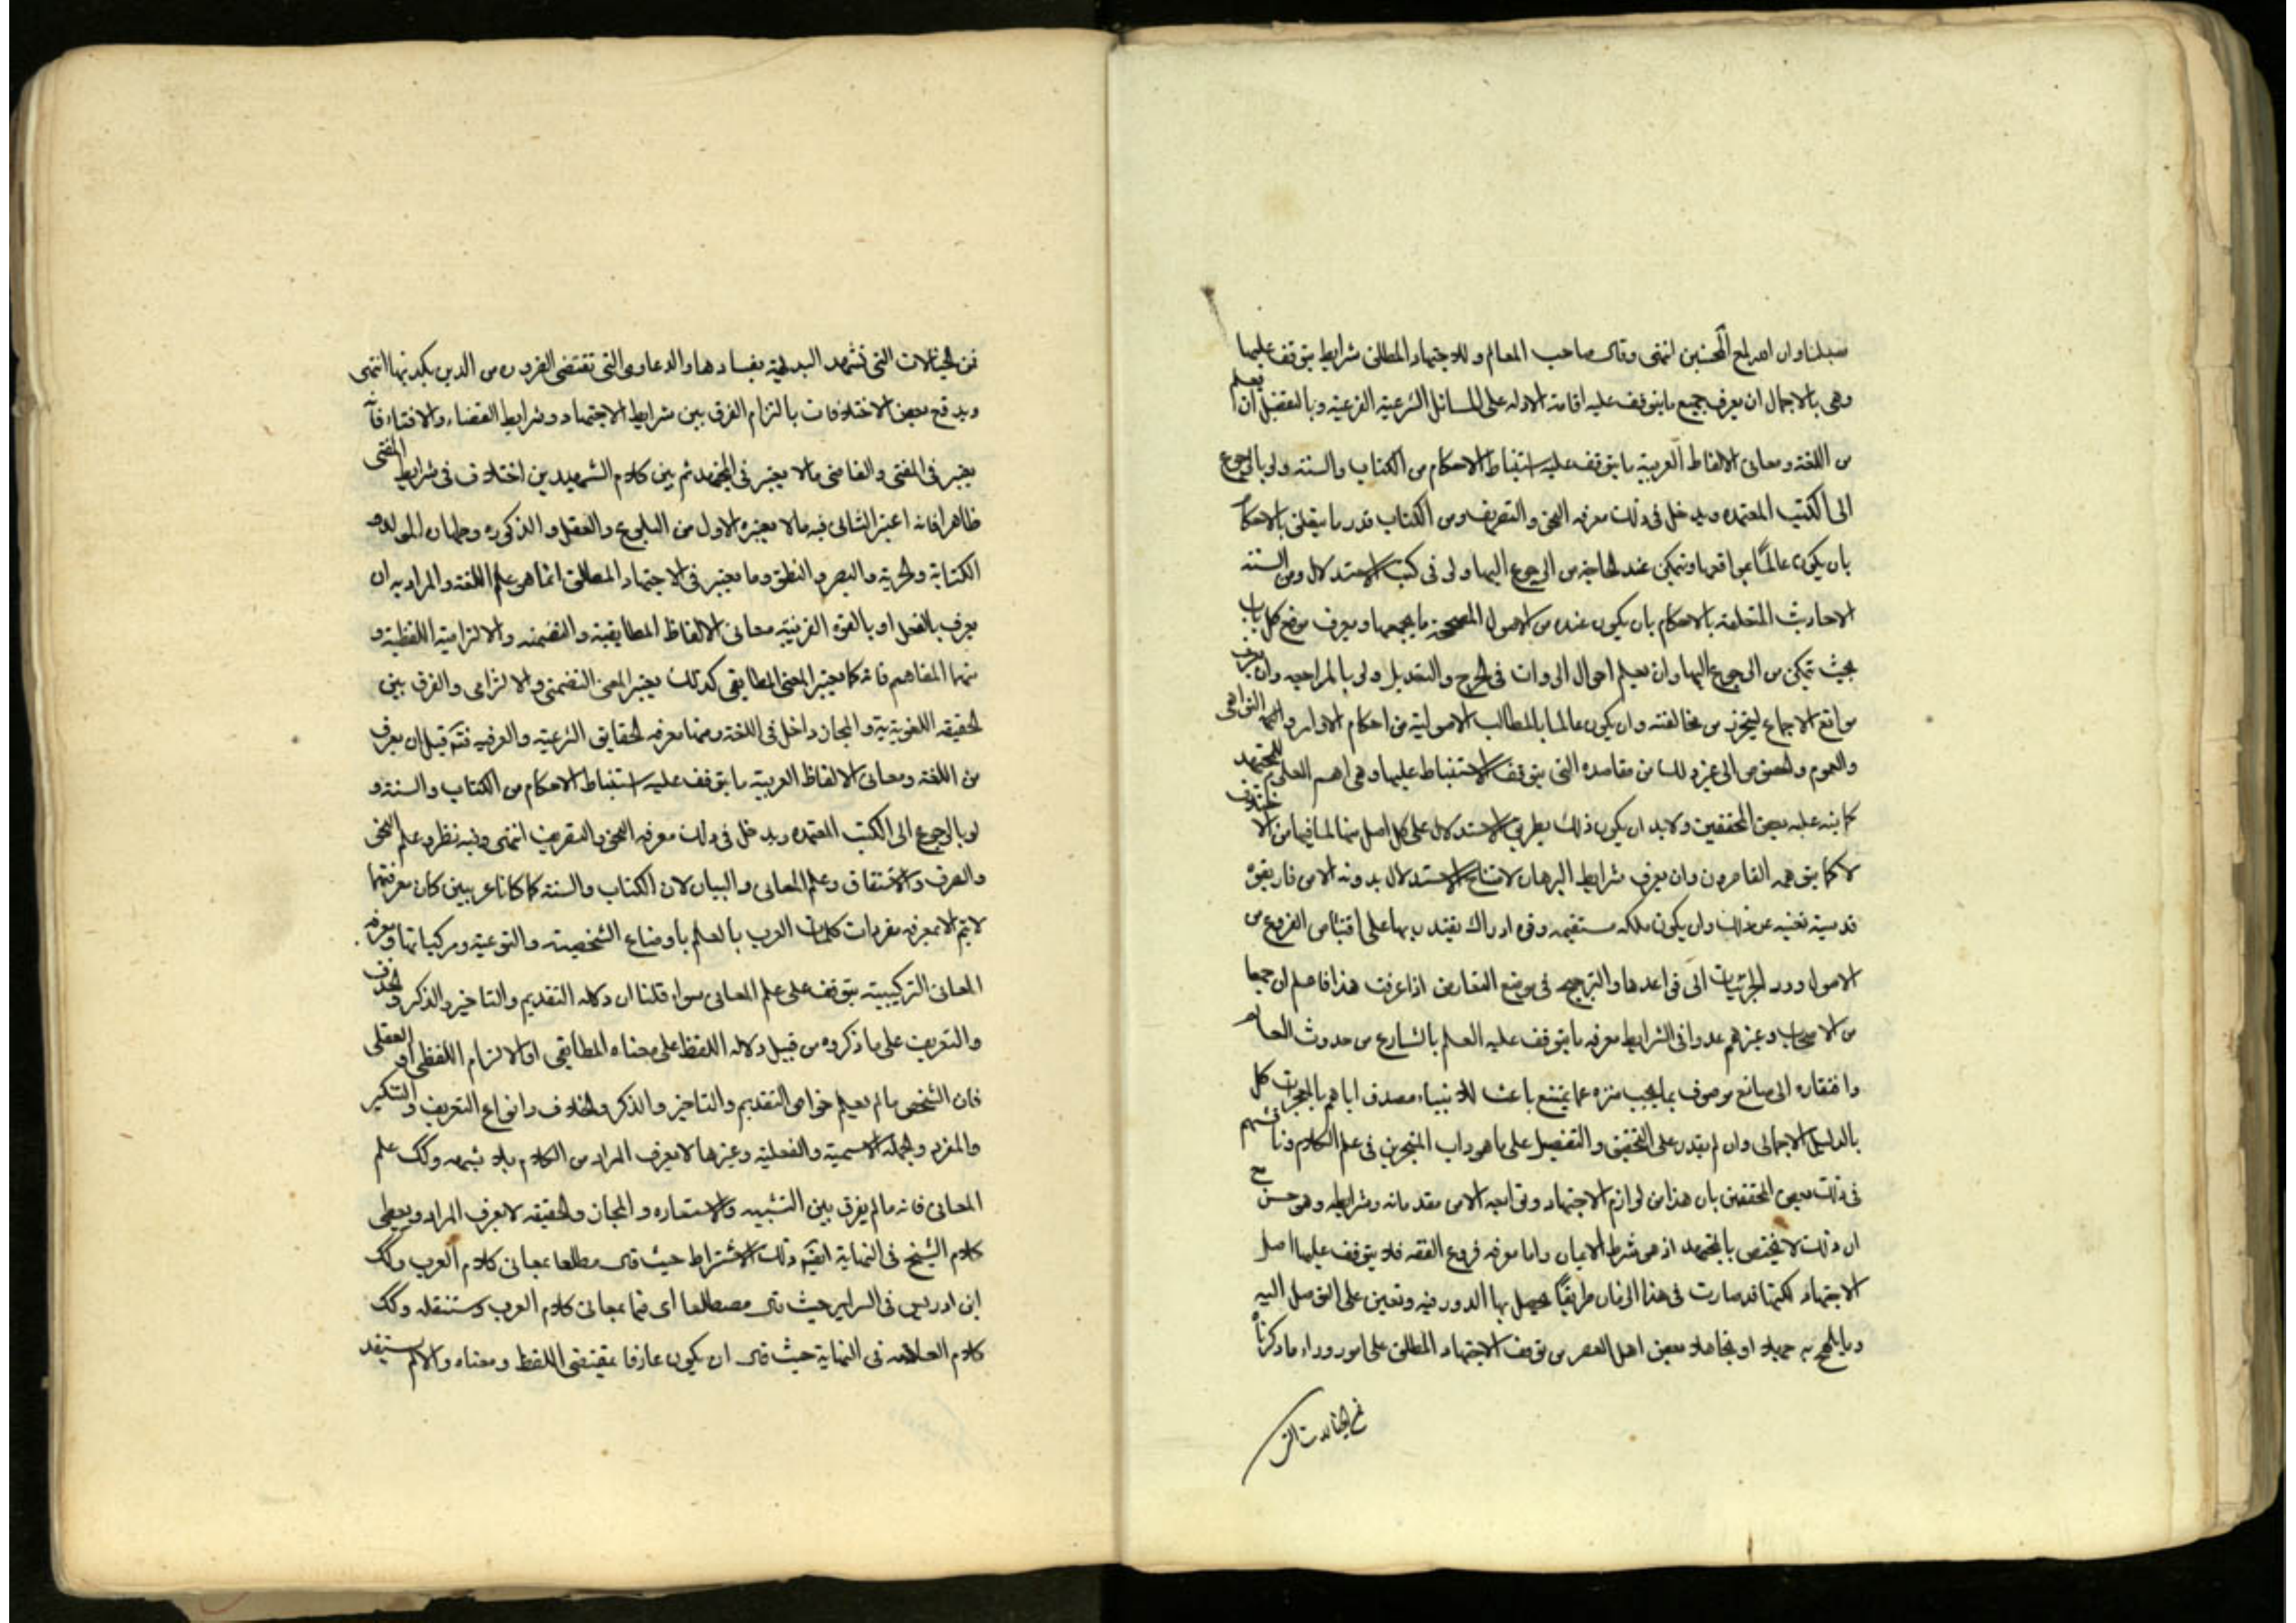 سبلنا وان الله لمع المحسنين انتهى وقال صاحب المعالم وللاجتهاد المطلق شرايط يتوقف عليها
وهي بالاجمال ان يعرف جميع ما يتوقف عليه اقامة الادله على المسائل الشرعية الفرعية وبالتفصيل ان يعلم
من اللغة ومعانى الالفاظ العربية ما يتوقف عليه استنباط الاحكام من الكتاب والسنة ولو بالرجوع
الى الكتب المعتمده ويدخل فى ذلك معرفه النحو والتصريف ومن الكتاب قدر ما يتعلق بالاحكام
بان يكون عالما بمواقعها ويتمكن عند الحاجة من الرجوع اليها ولو فى كتب الاستدلال ومن السنة
الاحاديث المتعلقه بالاحكام بان يكون عنده من الاصول المصححة ما يجمعها ويعرف موضع كل باب
بحيث يتمكن من الرجوع اليها وان يعلم احوال الروات فى الجرح والتعديل ولو بالمراجعه وان يعرف
مواقع الاجماع ليتحرز من مخالفته وان يكون عالما بالمطالب الاصولية من احكام الاوامر والنواهى
والعموم والخصوص الى غير ذلك من مقاصده التى يتوقف الاستنباط عليها وهى اهم العلوم للمجتهد
كما نبه عليه بعض المحققين ولابد ان يكون ذلك بطريق الاستدلال على كل اصل منها لما فيها من الاختلاف
لا كما يتوهمه القاصرون وان يعرف شرايط البرهان لامتناع الاستدلال بدونه الا من فاز بقوه
قدسية تغنيه عن ذلك وان يكون ملكه مستقيمه وقوه ادراك يقتدر بها على اقتناص الفروع من
الاصول ورد الجزئيات الى قواعدها والترجيح فى موضع التعارض اذا عرفت هذا فاعلم ان جمعا
من الاصحاب وغيرهم عدوا فى الشرايط معرفه ما يتوقف عليه العلم بالشارع من حدوث العالم
وافتقاره الى صانع موصوف بما يجب منزه عما يمتنع باعث للانبياء مصدق اياهم بالمعجزات كل
بالدليل الاجمالى وان لم يقدر على التحقيق والتفصيل على ما هو داب المتبحرين فى علم الكلام وناقشهم
فى ذلك بعض المحققين بان هذا من لوازم الاجتهاد وتوابعه لا من مقدماته وشرايطه وهو حسن مع
ان ذلك لا يختص بالمجتهد اذ هو شرط الايمان واما معرفه فروع الفقه فلا يتوقف عليها اصل
الاجتهاد لكنها قد صارت فى هذا الزمان طريقا يحصل بها الدور فيه وتعين على التوصل اليه
وما يلهج به جهلا او تجاهلا بعض اهل العصر من توقف الاجتهاد المطلق على امور وراء ما ذكرناه
فن الخيالات التى
فن الخيالات التى تشهد البديهية بفسادها والدعاوى التى تقتضى الضرورة من الدين بكذبها انتهى
ويدفع بعض الاختلافات بالتزام الفرق بين شرايط الاجتهاد وشرايط القضاء والافتاء فانه
يعتبر فى المفتى والقاضى ما لا يعتبر فى المجتهد ثم بين كلام الشهيدين اختلاف فى شرايط المفتى
ظاهرا فانه اعتبر الثانى فيه ما لا يعتبره الاول من البلوغ والعقل والذكوره وطهاره المولد و
الكتابة والحرية والبصر والنطق وما يعتبر فى الاجتهاد المطلق انما هو علم اللغة والمراد به ان
يعرف بالفعل او بالقوه القريبة معانى الالفاظ المطابقية والتضمنه والالتزامية اللفظية و
منها المفاهيم فانه كما يعتبر المعنى المطابقى كذلك يعتبر المعنى التضمنى والالتزامى والفرق بين
الحقيقه اللغوية والمجاز داخل فى اللغة ومنها معرفه الحقايق الشرعية والعرفيه قبل ان يعرف
من اللغة ومعانى الالفاظ العربية ما يتوقف عليه استنباط الاحكام من الكتاب والسنة و
لو بالرجوع الى الكتب المعتمده ويدخل فى ذلك معرفه النحو والتصريف انتهى وفيه نظر وعلم النحو
والصرف والاشتقاق وعلم المعانى والبيان لان الكتاب والسنة لما كانا عربيين كان معرفتهما
لا تتم الا بمعرفه مفردات كلمات العرب بالعلم باوضاع الشخصيته والنوعية ومركباتها ومعرفه
المعانى التركيبية يتوقف على علم المعانى سواء قلنا ان دلاله التقديم والتاخير والذكر والحذف
والتعريف على ما ذكروه من قبيل دلاله اللفظ على معناه المطابقى او الالتزام اللفظى او العقلى
فان الشخص ما لم يعلم خواص التقديم والتاخير والذكر والحذف وانواع التعريف والتنكير
والمفرد والجملة الاسمية والفعلية وغيرها لا يعرف المراد من الكلام بلا شبهه وكذا علم
المعانى فانه ما لم يفرق بين التشبيه والاستعاره و المجاز والحقيقه لا يعرف المراد ويعطى
كلام الشيخ فى النهاية ايضا ذلك الاشتراط حيث قال مطلعا بمعانى كلام العرب وكذا
ابن ادريس فى السراير حيث قال مضطلعا اى قيما بمعانى كلام العرب وكذا
كلام العلامه فى النهاية حيث قال ان يكون عارفا بمقتضى اللفظ ومعناه والا لم يستفد